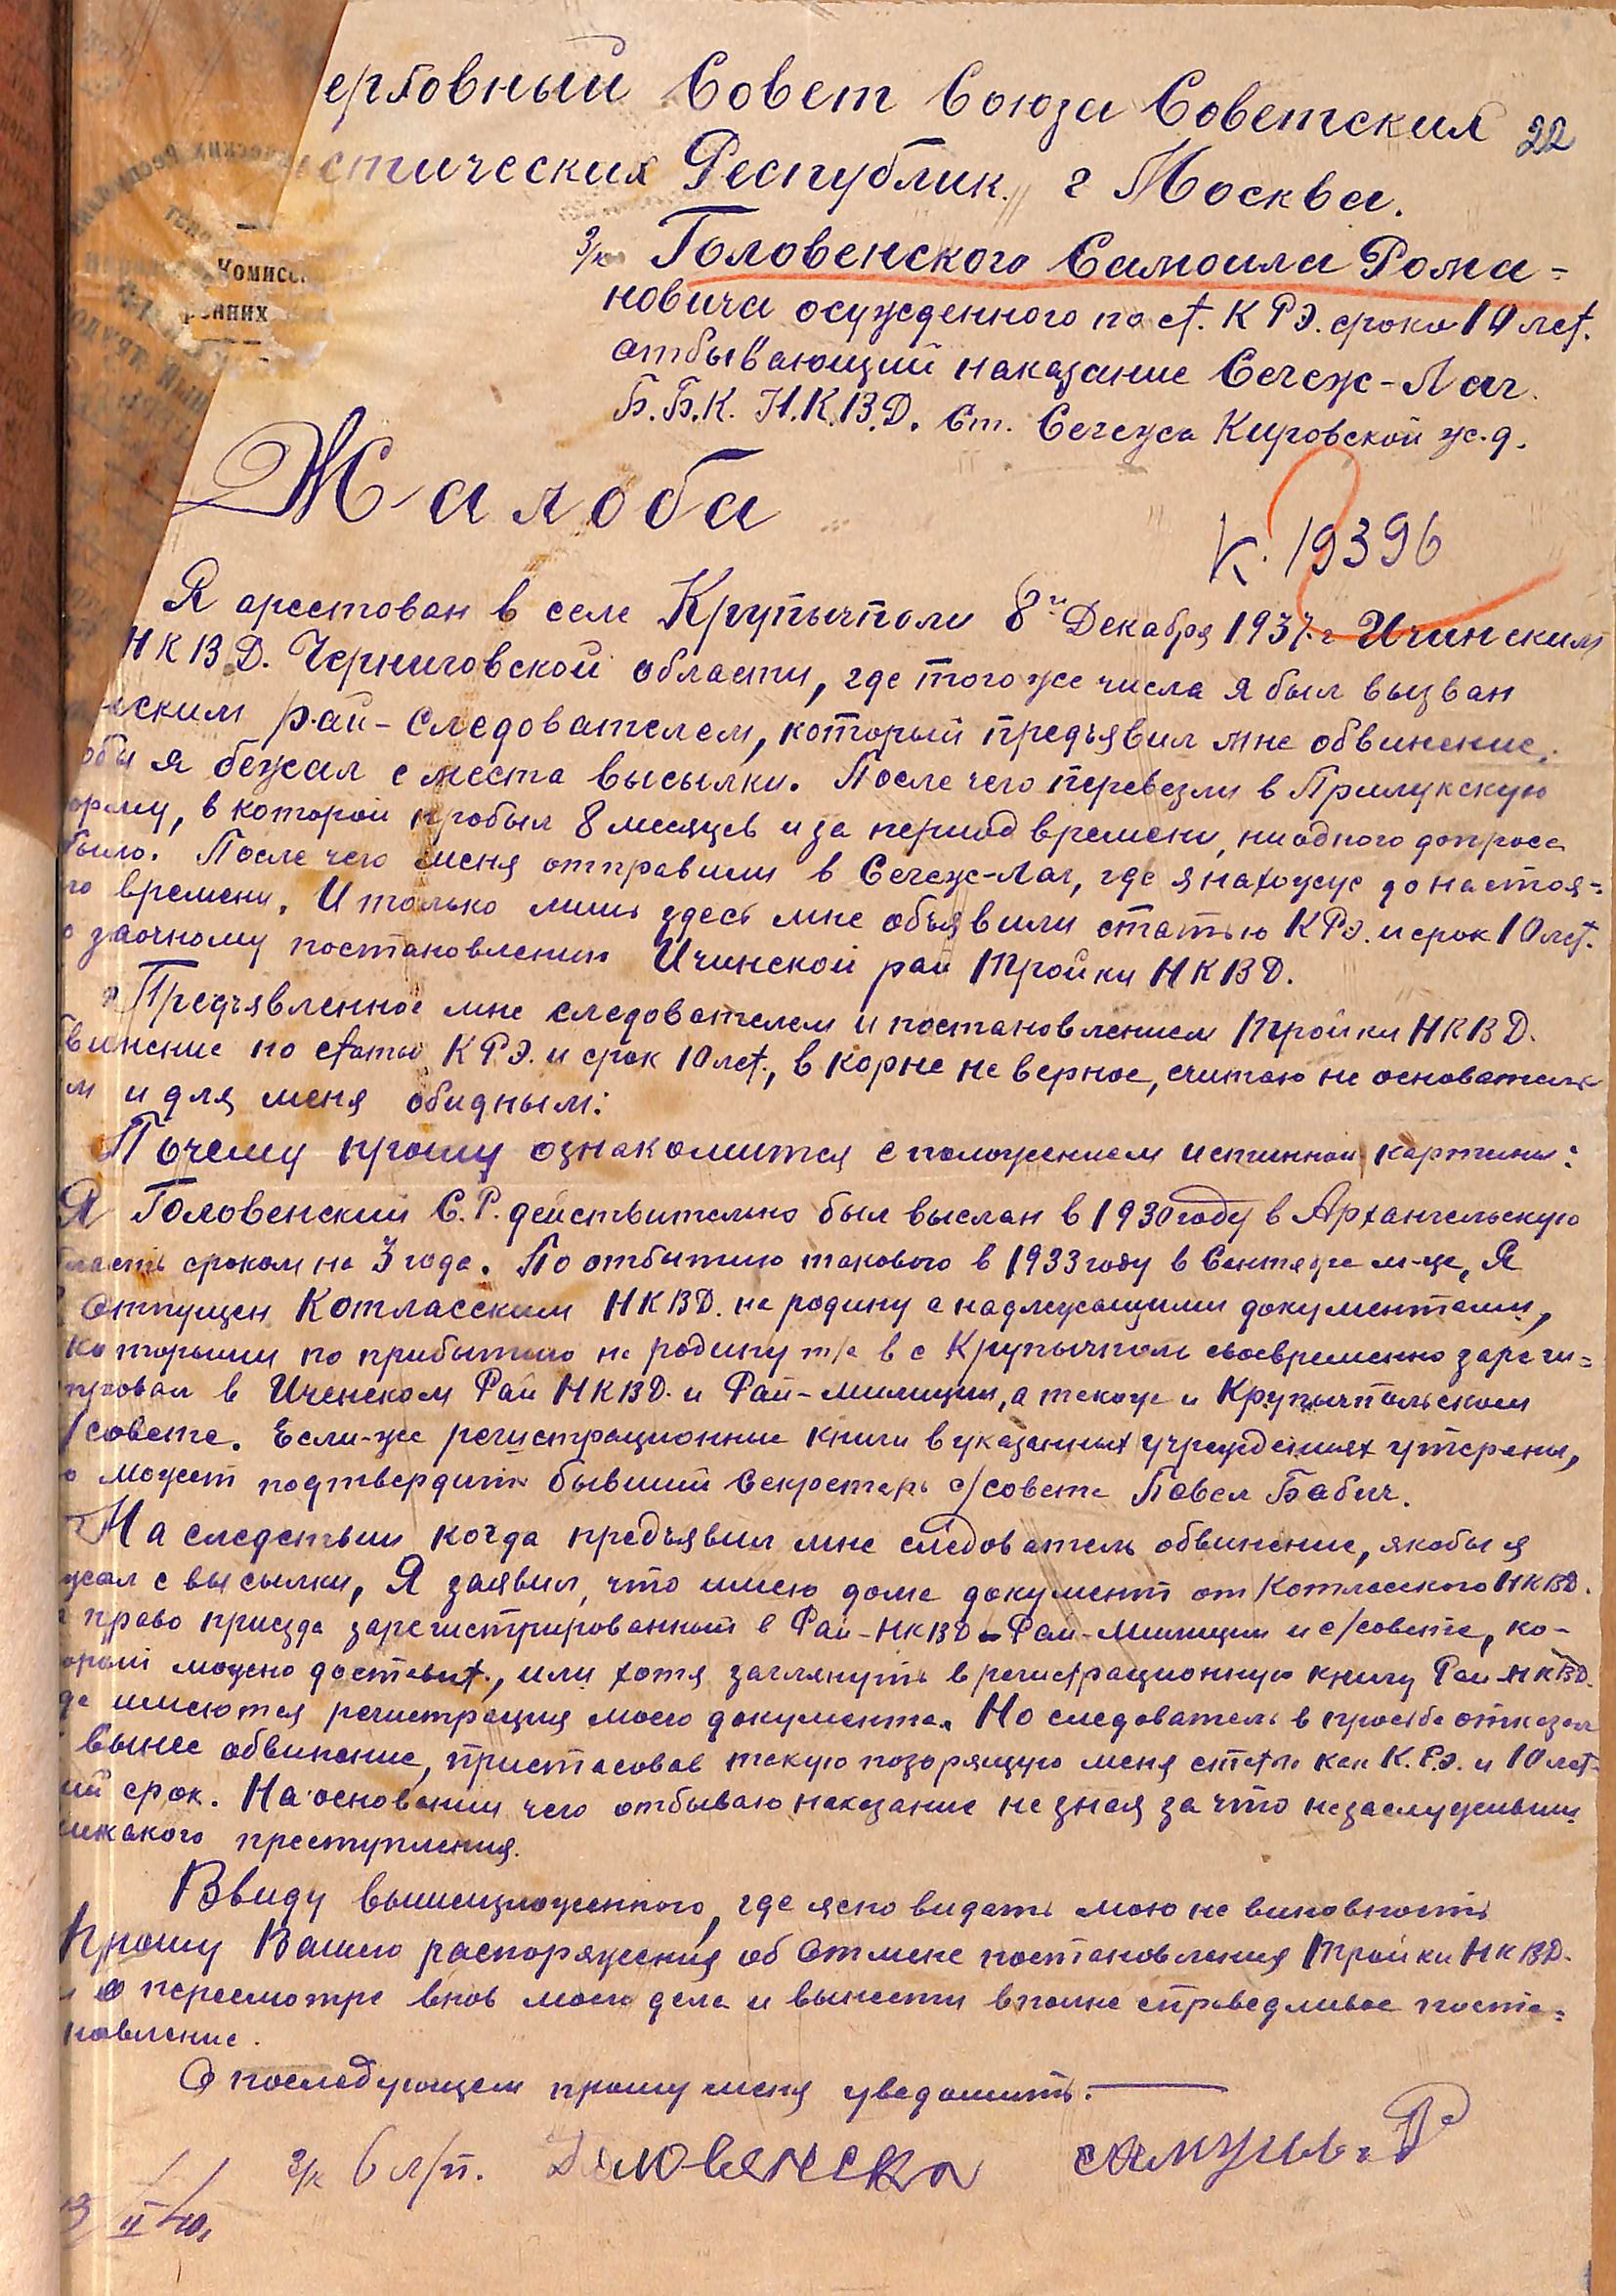 ерховный Совет Союза Советских 22
истических Республик. г Москва.
з/к Головенского Самоила Рома-
новича осужденного по ст. КРЭ. срока 10 лет.
отбывающий наказание Сегеж-Лаг.
Б.Б.К. Н.К.В.Д. Ст. Сегежа Кировской ж.д.
Комисс
ренних
Жалоба
К. 19396
Я арестован в селе Крупичполи 8го Декабря 1937 г Ичинским
НКВД. Черниговской области, где того же числа я был вызван
ским рай-следователем, который предъявил мне обвинение,
обы я бежал с места высылки. После чего перевезли в Прилукскую
юрьму, в которой пробыл 8 месяцев и за период времени, ни одного допроса
было. После чего меня отправили в Сегеж-Лаг, где я нахожус до настоя-
го времени. И только лишь здесь мне объявили статью КРЭ. и срок 10 лет.
о заочному постановлению Ичинской рай Тройки НКВД.
Предъявленное мне следователем и постановлением Тройки НКВД.
бвинение по статьи КРЭ. и срок 10 лет., в корне не верное, считаю не основательн
м и для меня обидным:
Почему прошу ознакомится с положением истинной картины:
Я Головенский С.Р. действительно был выслан в 1930 году в Архангельскую
бласть сроком на 3 года. По отбытию такового в 1933 году в Сентябре м-це, Я
Отпущен Котласским НКВД. на родину с надлежащими документами,
которыми по прибытию на родину т/е в с Крупичполь своевременно зареги-
тровал в Иченском Рай НКВД. и Рай-милиции, а также и Крупичпольском
/совете. Если-же регистрационные книги в указанных учреждениях утеряны,
о может подтвердить бывший Секретарь с/совета Павел Бабич.
На следствии когда предъявил мне следователь обвинение, якобы я
жал с высылки, Я заявил, что имею дома документ от Котласского НКВД.
а право приезда зарегистрированный в Рай-НКВД Рай-Милиции и с/совете, ко-
орый можно доставит., или хотя заглянуть в регистрационную книгу Рай НКВД.
де имеются регистрация моего документа. Но следователь в просьбе отказал
вынес обвинение, пристасовав такую позорящую меня статью как К.Р.Э. и 10 лет-
ий срок. На основании чего отбываю наказание не зная за что незаслуживши
никакого преступления.
Ввиду вышеизложенного, где ясно видать мою не виновность
Прошу Вашего распоряжения об Отмене постановления Тройки НКВД.
и о пересмотре вновь моего дела и вынести вполне справедливое поста-
новление.
О последующем прошу меня уведомить.
з/к 6 л/п. Головенски Самуил Р
3/II 40.